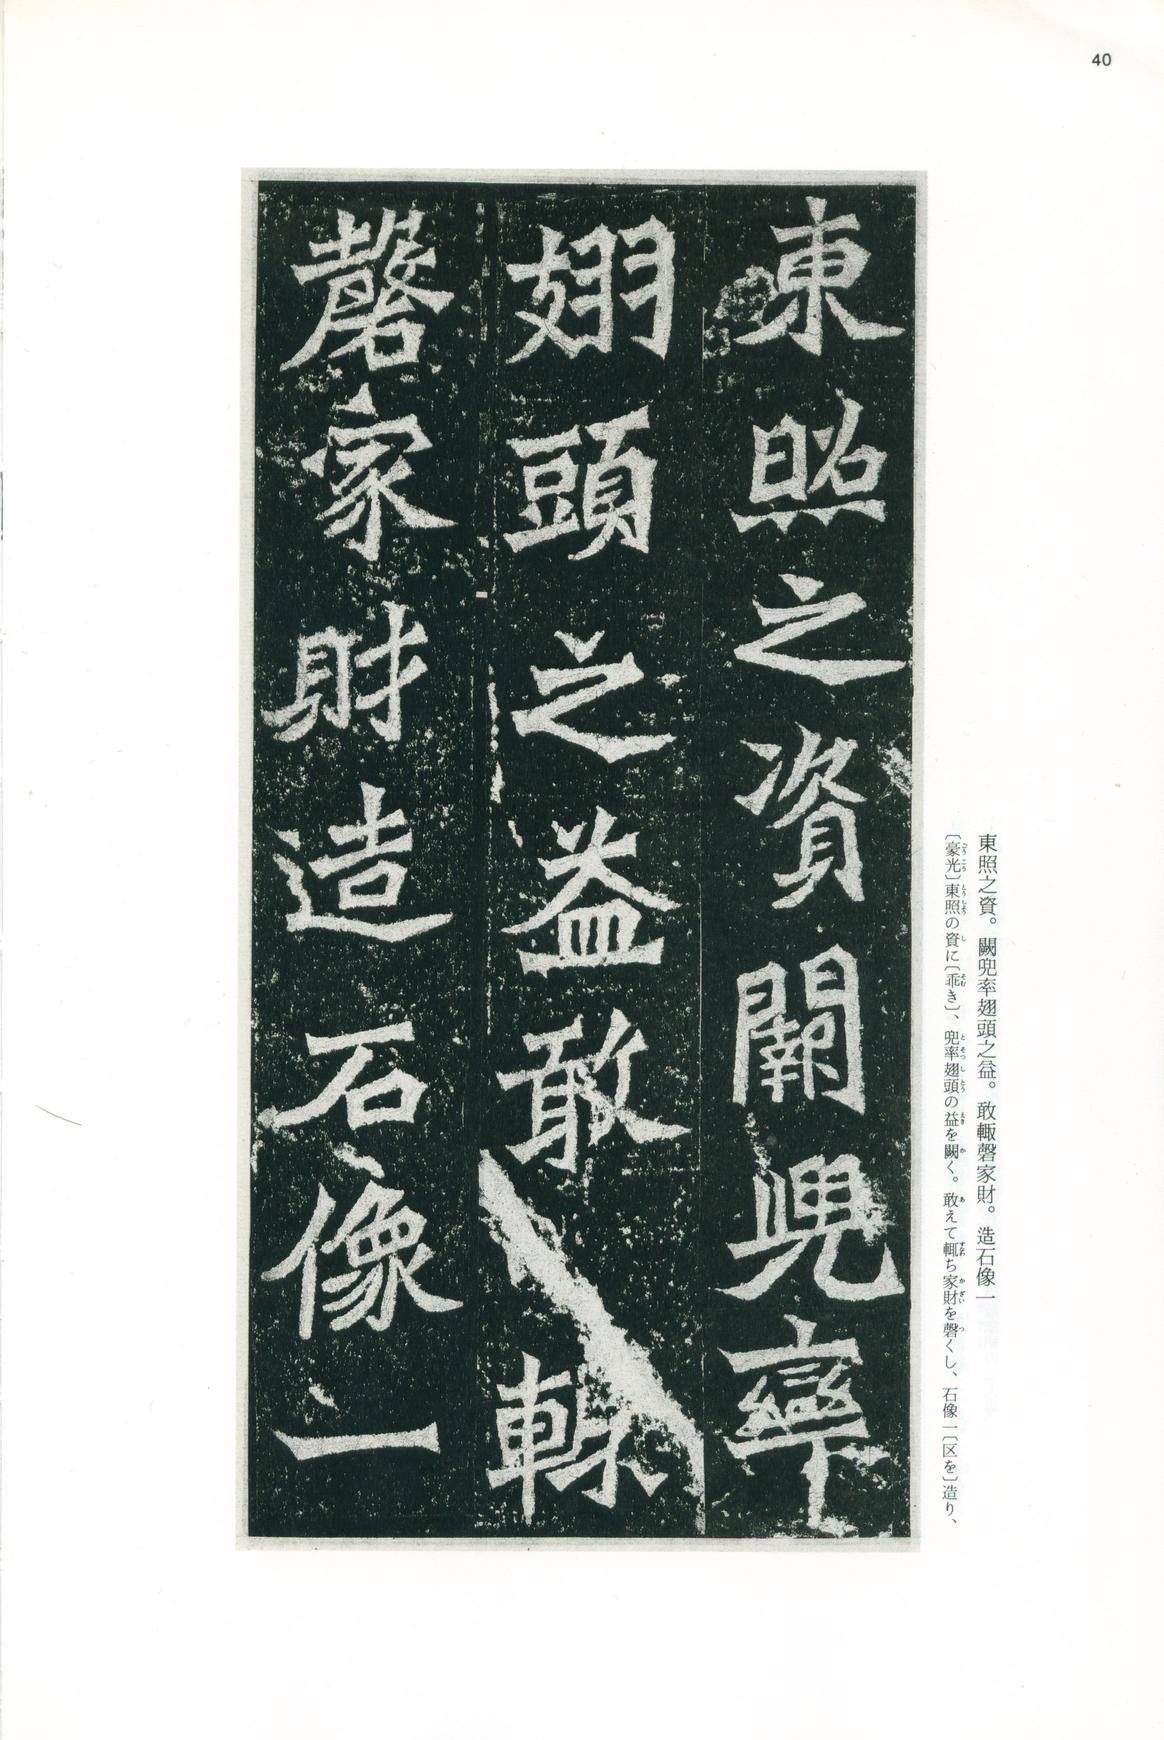 40
東照之資闕兜率
翅頭之益敢輙
磬家財造石像一
東照之資。闕兜率翅頭之益。敢輙磬家財。造石像一
〔豪光〕東照の資に〔乖き〕、兜率翅頭の益を闕く。敢えて輙ち家財を磬くし、石像一〔区を〕造り、